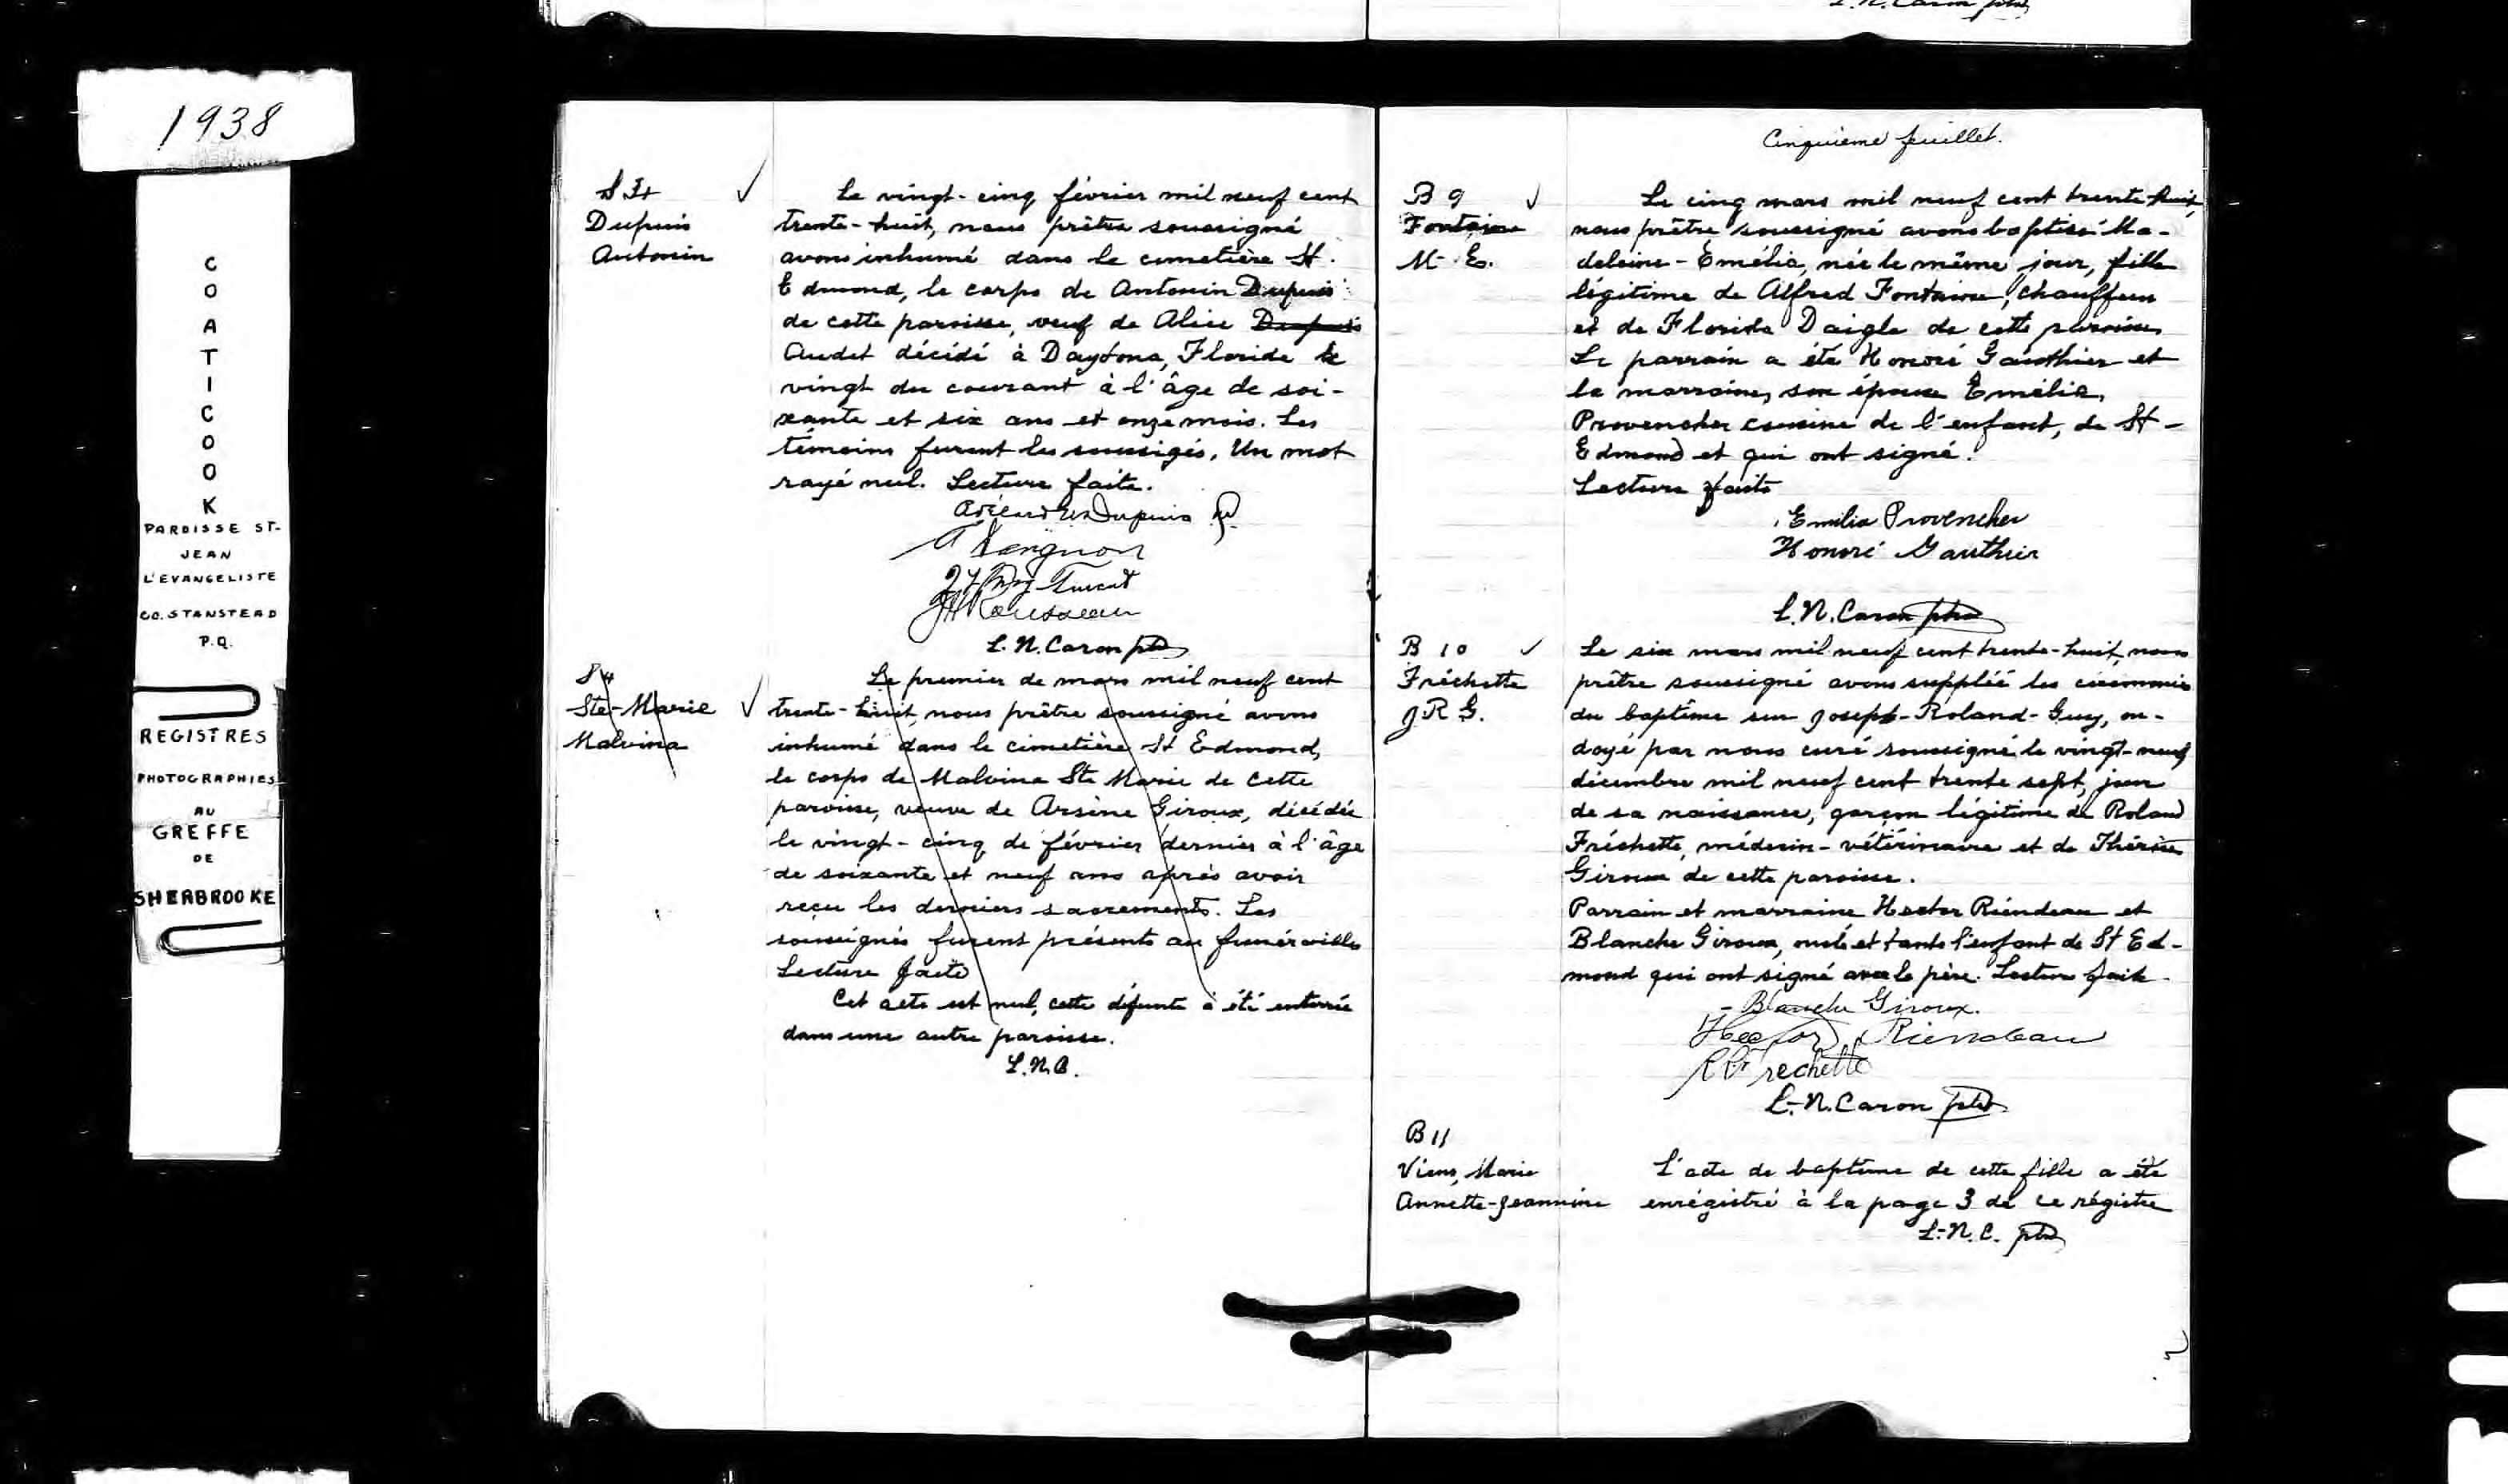 L.N. Caron ptre
1938
COATICOOK
PAROISSE ST-
JEAN
L'EVANGELISTE
CO. STANSTEAD
P.Q.
REGISTRES
PHOTOGRAPHIES
AU
GREFFE
DE
SHERBROOKE
Dupuis
Antonin
Le vingt-cinq février mil neuf cent
trente-huit, nous prêtre soussigné
avons inhumé dans le cimetière St.
Edmond, le corps de Antonin Dupuis
de cette paroisse, veuf de Alice Dupuis
Audet décédé à Daytona, Floride le
vingt du courant à l'âge de soi-
xante et six ans et onze mois. Les
témoins furent les soussigés. Un mot
rayé nul. Lecture faite.
Dupuis
Rousseau
L.N. Caron ptre
S 4
Ste-Marie
Malvina
Le premier de mars mil neuf cent
trente-huit, nous prêtre soussigné avons
inhumé dans le cimetière St Edmond,
le corps de Malvina Ste Marie de cette
paroisse, veuve de Arsène Giroux, décédée
le vingt-cinq de février dernier à l'âge
de soixante et neuf ans après avoir
reçu les derniers sacrements. Les
soussignés furent présents au funérailles
Lecture faite
Cet acte est nul, cette défunte a été enterrée
dans une autre paroisse.
L.N.C.
Cinquième feuillet.
B 9
Fontaine
M-E.
Le cinq mars mil neuf cent trente-huit,
nous prêtre soussigné avons baptisé Ma-
deleine-Emélia, née le même jour, fille
légitime de Alfred Fontaine, chauffeur
et de Florida Daigle de cette paroisse.
Le parrain a été Honoré Gauthier et
la marraine, son épouse Emélia
Provencher cousine de l'enfant, de St-
Edmond et qui ont signé.
Lecture faite
Emilia Provencher
Honoré Gauthier
L.N. Caron ptre
B 10
Fréchette
J.R.G.
Le six mars mil neuf cent trente-huit, nous
prêtre soussigné avons suppléé les cérémonies
du baptême sur Joseph-Roland-Guy, on-
doyé par nous curé soussigné le vingt-neuf
décembre mil neuf cent trente sept, jour
de sa naissance, garçon légitime de Roland
Fréchette, médecin-vétérinaire et de Thérèse
Giroux de cette paroisse.
Parrain et marraine Hector Riendeau et
Blanche Giroux, oncle et tante l'enfant de St Ed-
mond qui ont signé avec le père. Lecture faite
Blanche Giroux.
Hector Riendeau
Frechette
L.-N. Caron ptre
B 11
Viens, Marie
Annette-Jeannine
L'acte de baptême de cette fille a été
enrégistré à la page 3 de ce régistre
L.-N.C. ptre